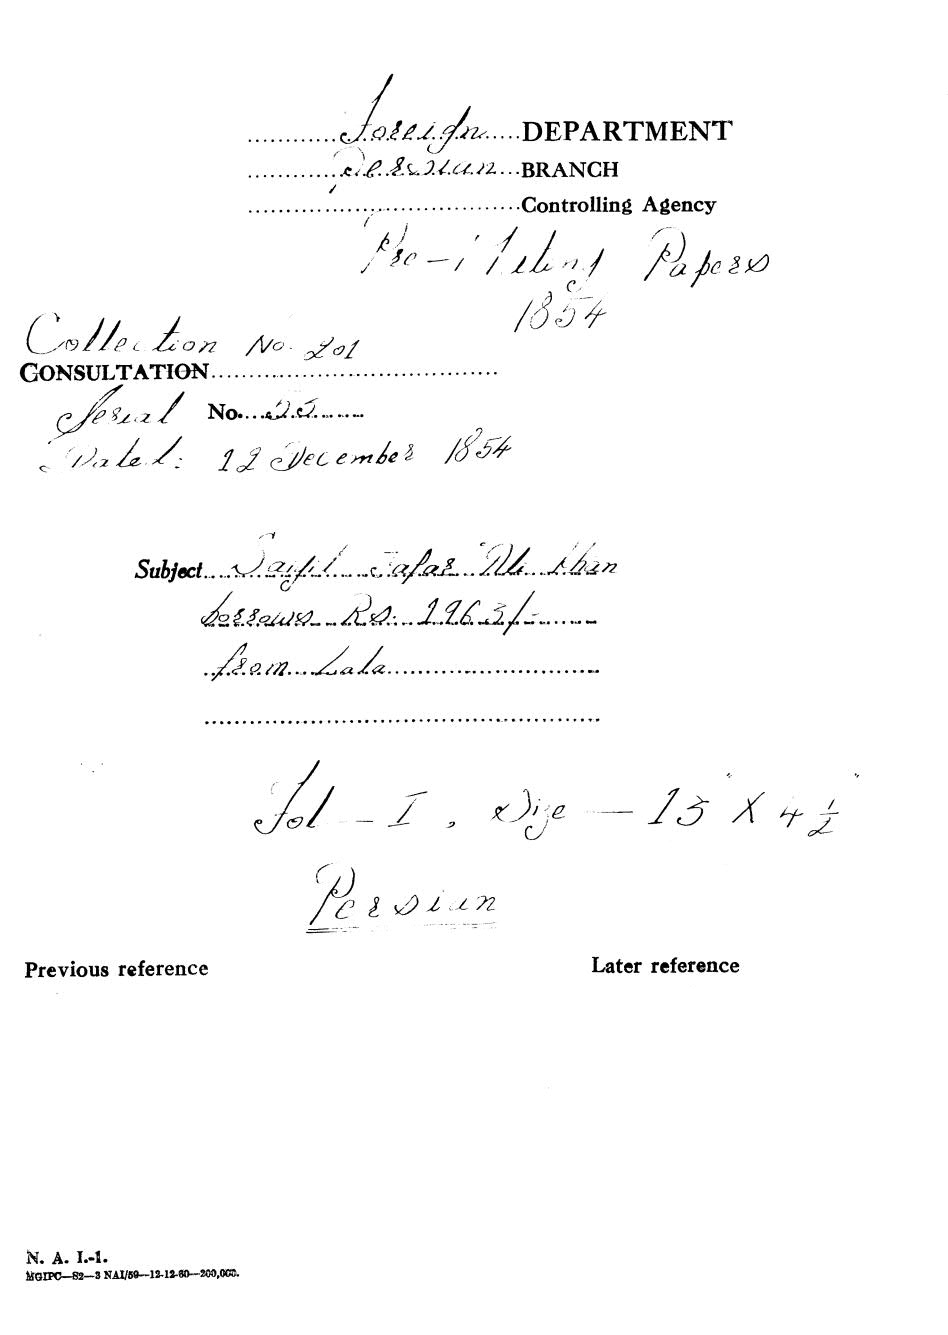 Foreign DEPARTMENT
Persian BRANCH
Controlling Agency
Papers
1854
Collection No. 201
CONSULTATION
Serial No.
Dated: 12 December 1854
Subject Ali Khan
borrows Rs. 1963/-
from Lala
Fol - I, Size - 15" X 4 1/2"
Persian
Previous reference
Later reference
N. A. I.-1.
MGIPC—S2—3 NAI/59—12-12-60—200,000.